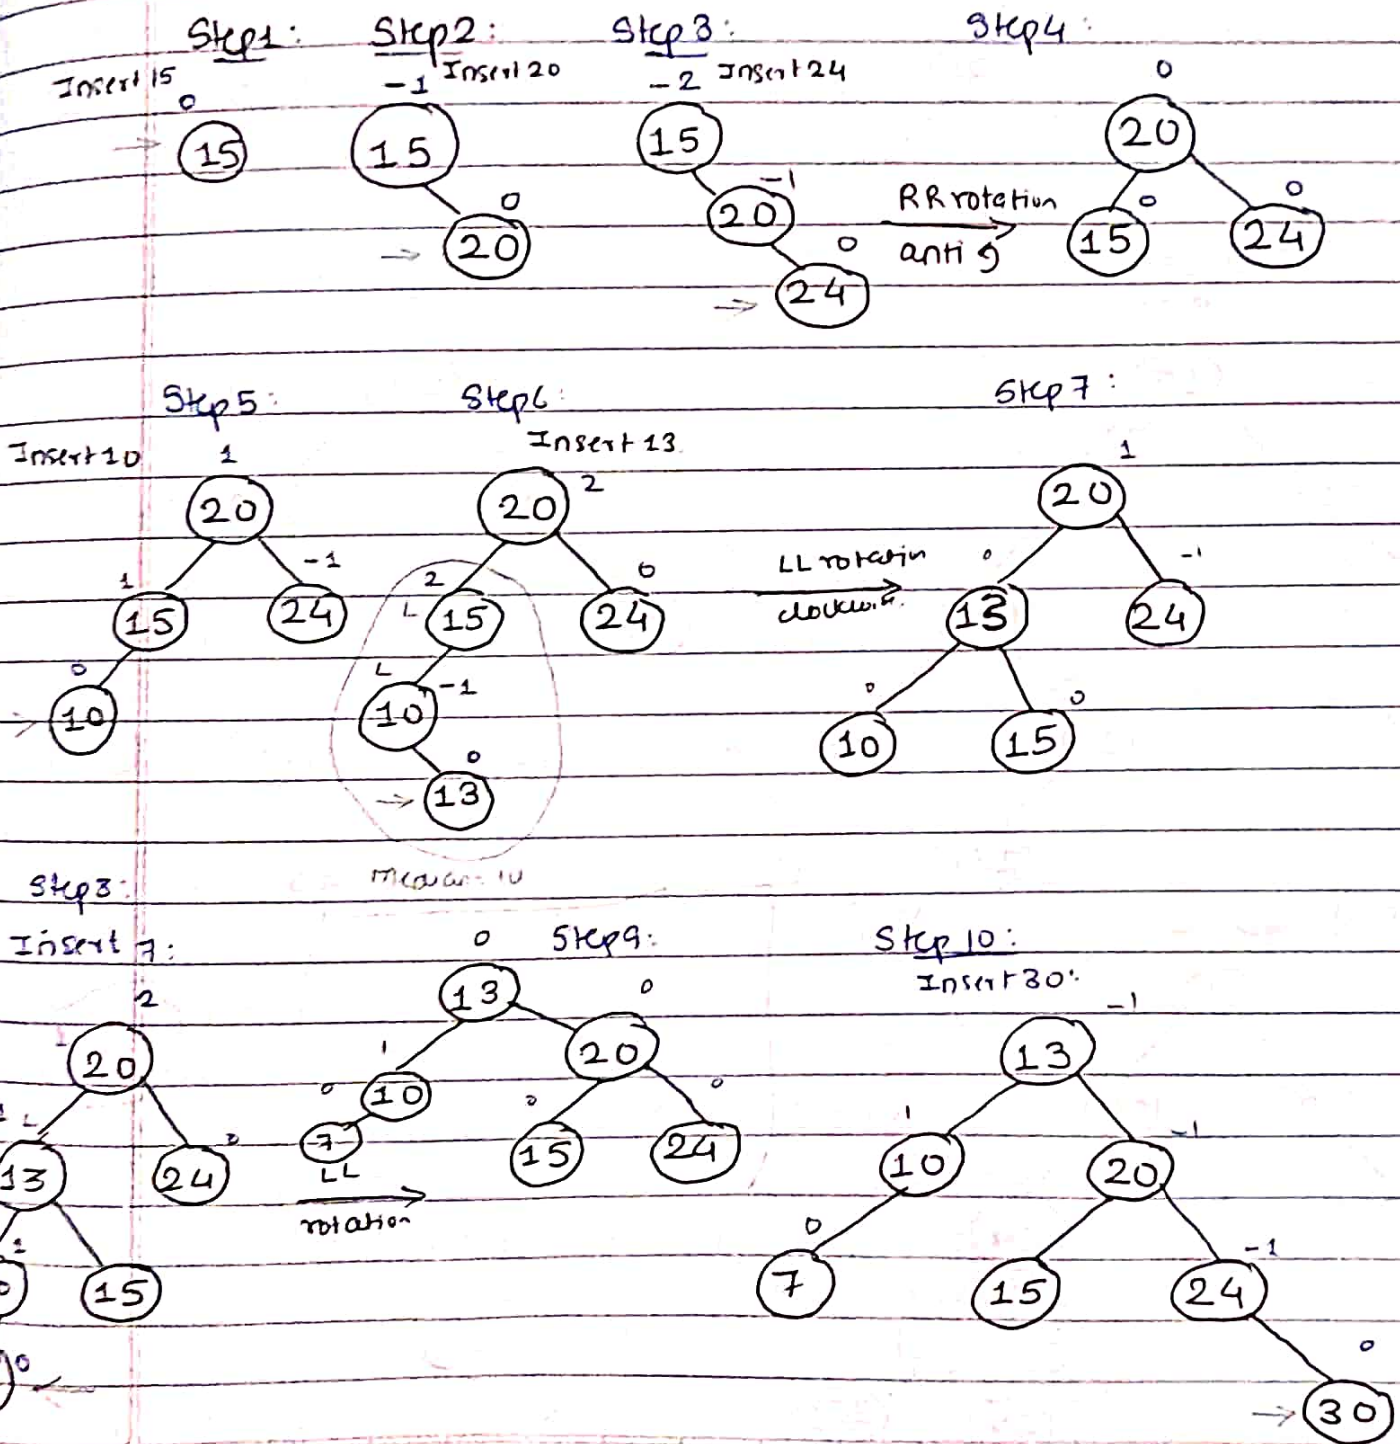 Step1:
Insert 15
0
15
Step2:
-1 Insert 20
15
0
20
Step 3:
-2 Insert 24
15
-1
20
0
24
RR rotation
anti
Step4:
0
20
0
15
0
24
Step 5:
Insert 10
1
20
1
15
-1
24
0
10
Step6
Insert 13
20 2
2
L 15
0
24
L
10 -1
0
13
LL rotation
clockwise.
Step 7:
1
20
0
13
-1
24
0
10
0
15
Step 8:
Insert 7:
2
20
L
13
0
24
1
15
0
Step 9:
0
13
0
20
1
10
0
7
0
15
0
24
LL
rotation
Step 10:
Insert 30:
-1
13
1
10
-1
20
0
7
15
-1
24
0
30